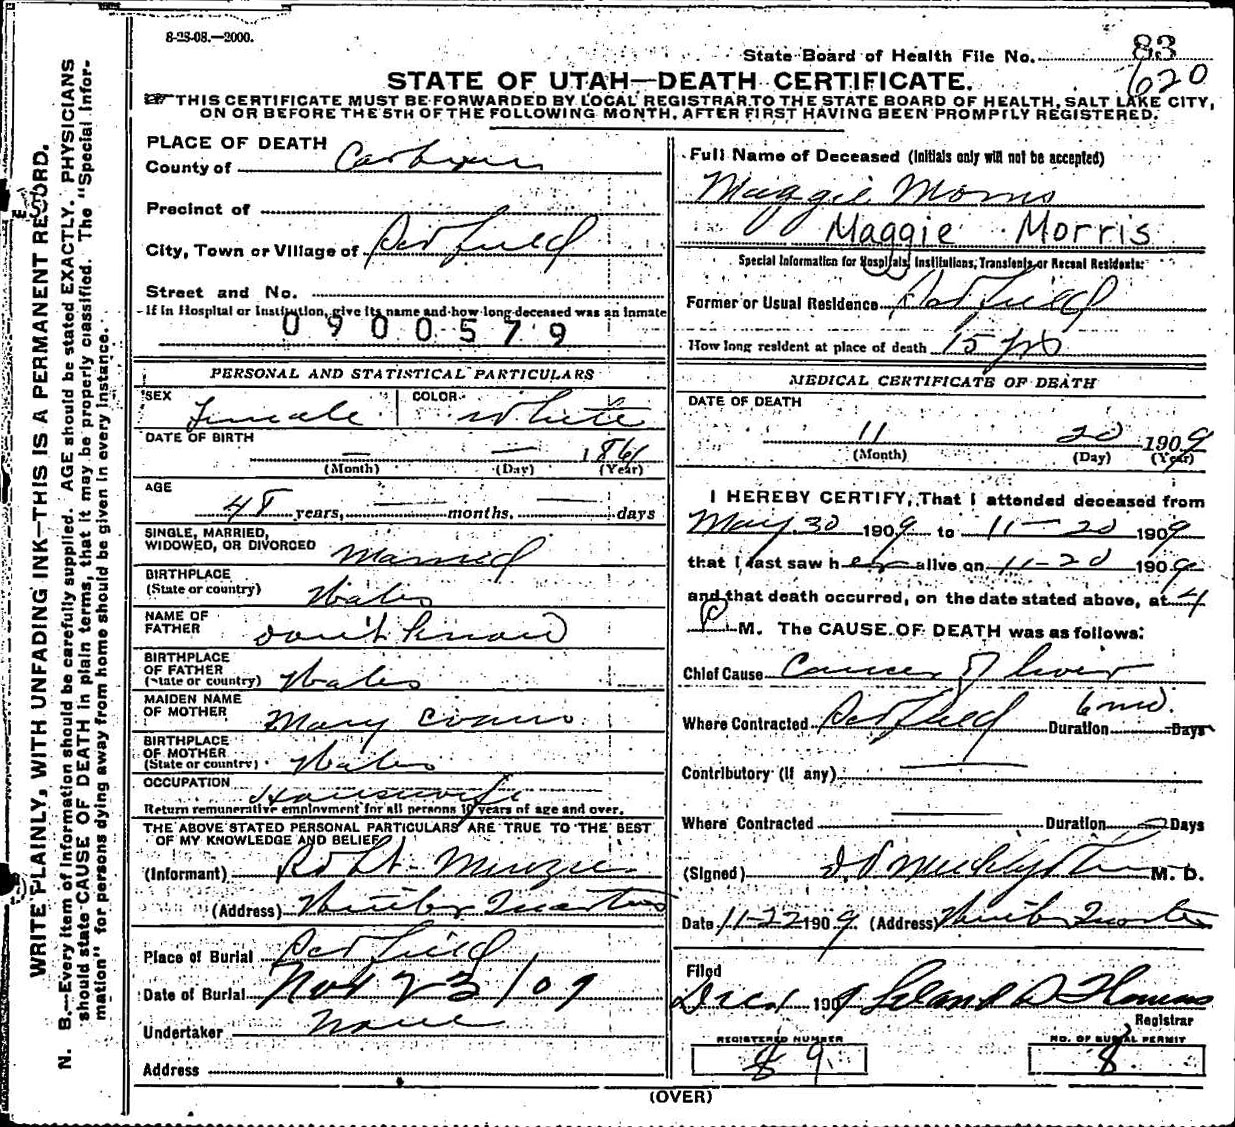 8-28-08.—2000.
State Board of Health File No. 83
620
STATE OF UTAH—DEATH CERTIFICATE.
THIS CERTIFICATE MUST BE FORWARDED BY LOCAL REGISTRAR TO THE STATE BOARD OF HEALTH, SALT LAKE CITY,
ON OR BEFORE THE 5TH OF THE FOLLOWING MONTH, AFTER FIRST HAVING BEEN PROMPTLY REGISTERED.
WRITE PLAINLY, WITH UNFADING INK—THIS IS A PERMANENT RECORD.
N. B.—Every item of information should be carefully supplied. AGE should be stated EXACTLY. PHYSICIANS
should state CAUSE OF DEATH in plain terms, that it may be properly classified. The "Special Infor-
mation" for persons dying away from home should be given in every instance.
PLACE OF DEATH
County of Carbon
Precinct of
City, Town or Village of
Street and No.
If in Hospital or Institution, give its name and how long deceased was an inmate
0900579
PERSONAL AND STATISTICAL PARTICULARS
SEX Female COLOR White
DATE OF BIRTH — — 1861
(Month) (Day) (Year)
AGE
48 years, — months. — days
SINGLE, MARRIED,
WIDOWED, OR DIVORCED Married
BIRTHPLACE
(State or country) Wales
NAME OF
FATHER don't know
BIRTHPLACE
OF FATHER
(State or country) Wales
MAIDEN NAME
OF MOTHER Mary Evans
BIRTHPLACE
OF MOTHER
(State or country) Wales
OCCUPATION Housewife
Return remunerative employment for all persons 10 years of age and over.
THE ABOVE STATED PERSONAL PARTICULARS ARE TRUE TO THE BEST
OF MY KNOWLEDGE AND BELIEF
(Informant) Robt.
(Address) Winter Quarters
Place of Burial
Date of Burial Nov 23/09
Undertaker None
Address
Full Name of Deceased (Initials only will not be accepted)
Maggie Morris
Maggie Morris
Special Information for Hospitals, Institutions, Transients or Recent Residents:
Former or Usual Residence
How long resident at place of death 15 yrs
MEDICAL CERTIFICATE OF DEATH
DATE OF DEATH
11 20 1909
(Month) (Day) (Year)
I HEREBY CERTIFY, That I attended deceased from
May 30 1909 to 11-20 1909
that I last saw her alive on 11-20 1909
and that death occurred, on the date stated above, at 4
P M. The CAUSE OF DEATH was as follows:
Chief Cause Cancer of liver
Where Contracted Duration 6 mo. Days
Contributory (If any) —
Where Contracted — Duration Days
(Signed) M. D.
Date 11-22 1909 (Address) Winter Quarters
Filed
Dec 1 1909 Leland D Thomas
Registrar
REGISTERED NUMBER
89
NO. OF BURIAL PERMIT
8
(OVER)